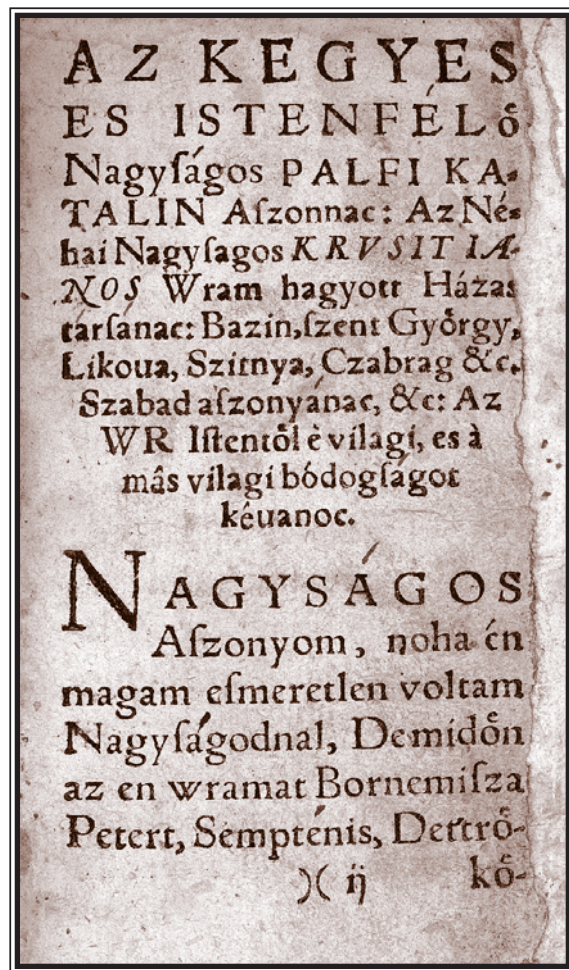 AZ KEGYES
ES ISTENFÉLő
Nagyſágos PALFI KA-
TALIN Aſzonnac: Az Né-
hai Nagyſagos KRVSIT IA-
NOS Wram hagyott Házas
tarſanac: Bazin, ſzent Győrgy,
Likoua, Szitnya, Czabrag &c.
Szabad aſzonyánac, &c: Az
WR Iſtentől è vilagi, es à
mâs vilagi bódogſágot
kéuanoc.
NAGYSÁGOS
Aſzonyom, noha én
magam eſmeretlen voltam
Nagyſágodnal, Demidőn
az en wramat Bornemiſza
Petert, Sempténis, Dettrő-
)( ij kő-